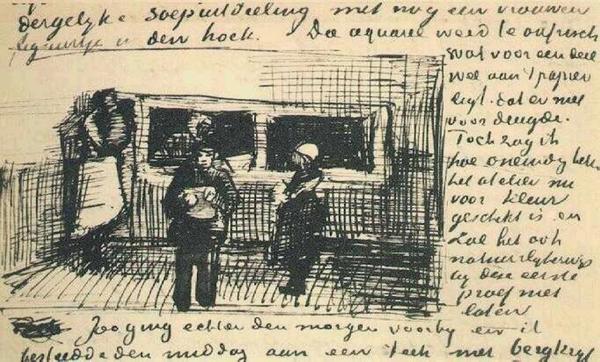 dergelyke soepuitdeeling met nog een vrouwen
figuurtje in den hoek. De aquarel werd te onfrisch
wat voor een deel
wel aan 't papier
ligt. dat er niet
voor deugde.
Toch zag ik
hoe oneindig beter
het atelier nu
voor kleur
geschikt is en
zal het ook
natuurlyk by
deze eerste
proef niet
laten
Zoo ging echter den morgen voorby en ik
besteedde den middag aan een teek. met bergkryt